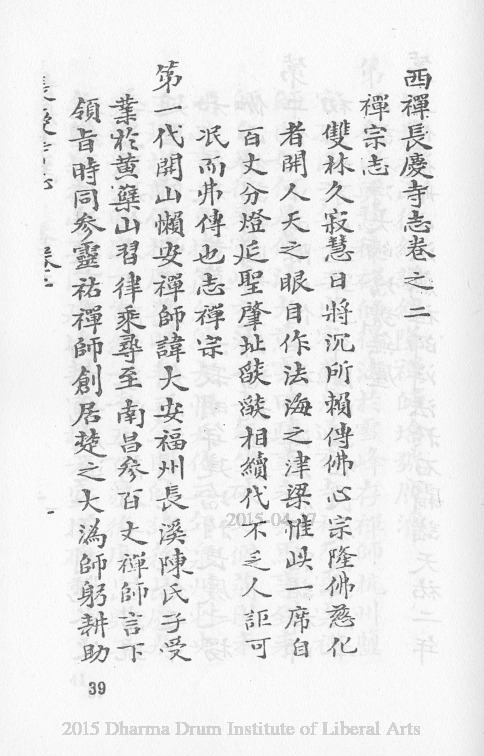 西禪長慶寺志卷之二
禪宗志
雙林久寂慧日將沉所賴傳佛心宗隆佛慈化
者開人天之眼目作法海之津梁惟此一席自
百丈分燈延聖肇址燄燄相續代不乏人詎可
泯而弗傳也志禪宗
第一代開山懶安禪師諱大安福州長溪陳氏子受
業於黃蘗山習律乘尋至南昌參百丈禪師言下
領旨時同參靈祐禪師創居楚之大溈師躬耕助
一
39
2015 Dharma Drum Institute of Liberal Arts